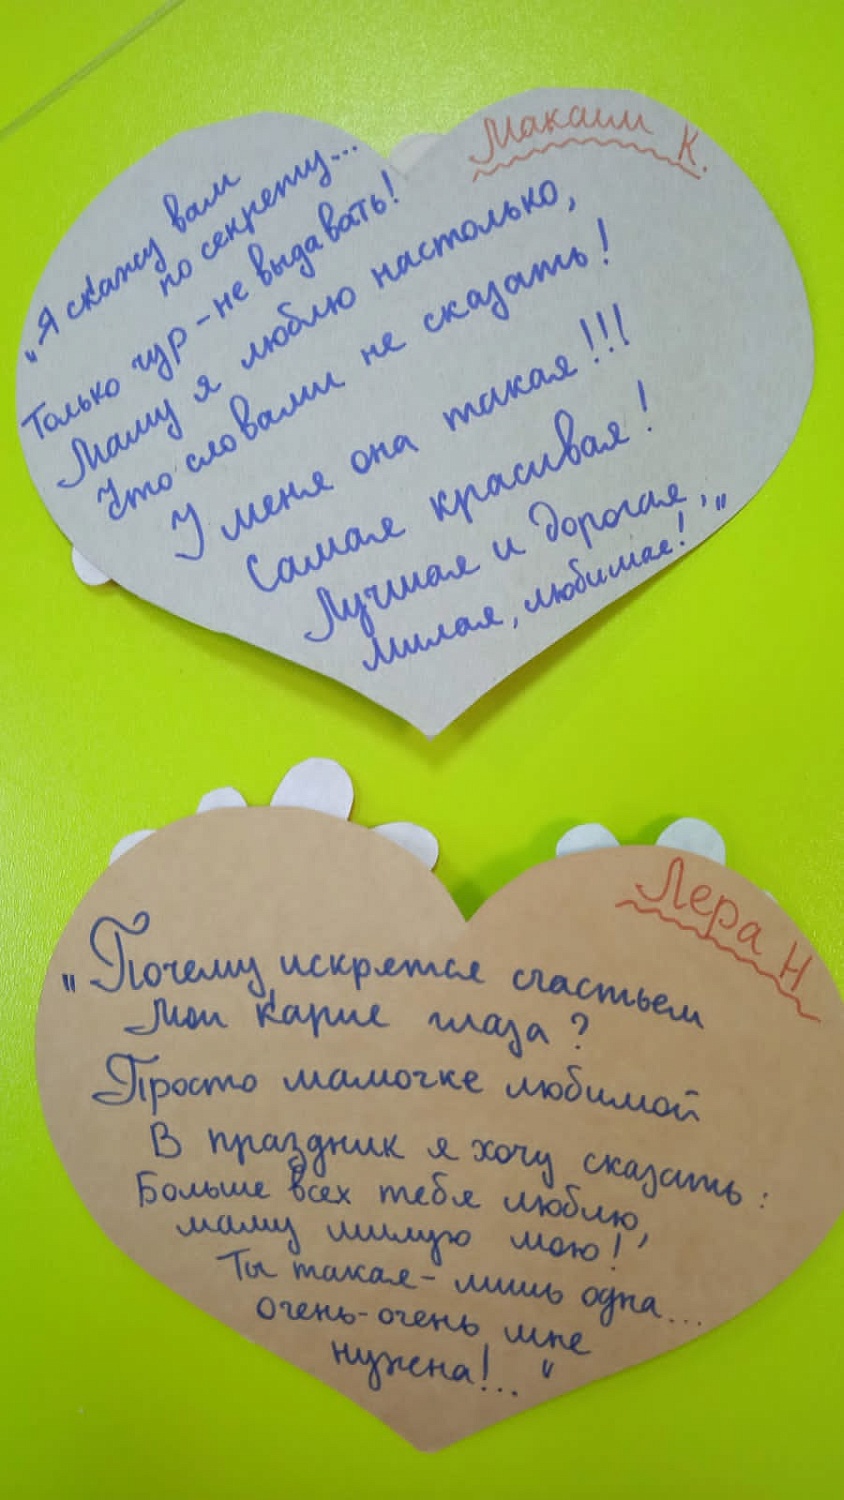 Максим К.
„Я скажу вам
по секрету...
Только чур - не выдавать!
Маму я люблю настолько,
Что словами не сказать!
У меня она такая!!!
Самая красивая!
Лучшая и дорогая,
Милая, любимая!„
Лера Н
"Почему искрятся счастьем
Мои карие глаза?
Просто мамочке любимой
В праздник я хочу сказать:
Больше всех тебя люблю,
маму милую мою!
Ты такая - лишь одна...
очень-очень мне
нужна!..."